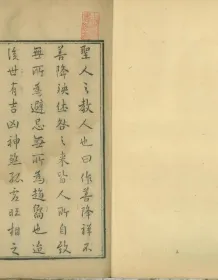 聖人之教人也曰作善降祥不
善降殃休咎之來皆人所自致
無所為避忌無所為趨嚮也迨
後世有吉凶神煞孤虛旺相之